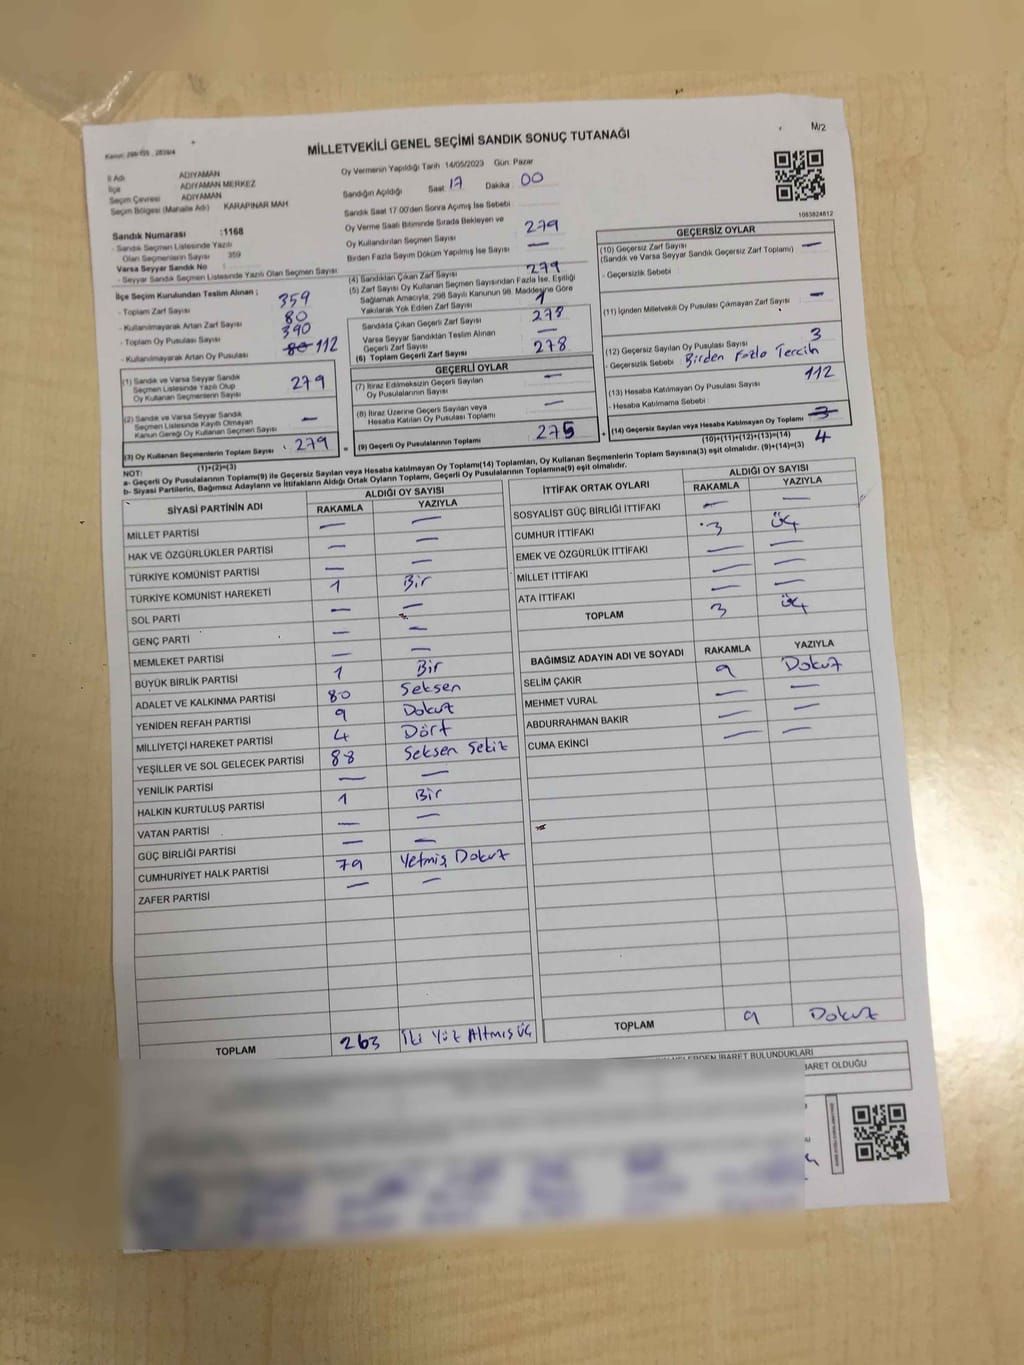 M/2
MİLLETVEKİLİ GENEL SEÇİMİ SANDIK SONUÇ TUTANAĞI
İl Adı ADIYAMAN
İlçe ADIYAMAN MERKEZ
Seçim Çevresi ADIYAMAN
Seçim Bölgesi (Mahalle Adı) KARAPINAR MAH
Sandık Numarası :1168
- Sandık Seçmen Listesinde Yazılı
Olan Seçmenlerin Sayısı 359
Varsa Seyyar Sandık No
- Seyyar Sandık Seçmen Listesinde Yazılı Olan Seçmen Sayısı:
İlçe Seçim Kurulundan Teslim Alınan ;
- Toplam Zarf Sayısı 359
- Kullanılmayarak Artan Zarf Sayısı 80
- Toplam Oy Pusulası Sayısı 390
- Kullanılmayarak Artan Oy Pusulası 80 112
(1) Sandık ve Varsa Seyyar Sandık
Seçmen Listesinde Yazılı Olup
Oy Kullanan Seçmenlerin Sayısı 279
(2) Sandık ve Varsa Seyyar Sandık
Seçmen Listesinde Kayıtlı Olmayan
Kanun Gereği Oy Kullanan Seçmen Sayısı —
(3) Oy Kullanan Seçmenlerin Toplam Sayısı 279
(1)+(2)=(3)
Oy Vermenin Yapıldığı Tarih :14/05/2023 Gün: Pazar
Sandığın Açıldığı Saat: 17 Dakika: 00
Sandık Saat 17.00'den Sonra Açılmış İse Sebebi
Oy Verme Saati Bitiminde Sırada Bekleyen ve
Oy Kullandırılan Seçmen Sayısı 279
Birden Fazla Sayım Döküm Yapılmış İse Sayısı —
(4) Sandıktan Çıkan Zarf Sayısı 279
(5) Zarf Sayısı Oy Kullanan Seçmen Sayısından Fazla İse, Eşitliği
Sağlamak Amacıyla, 298 Sayılı Kanunun 98. Maddesine Göre
Yakılarak Yok Edilen Zarf Sayısı 1
Sandıkta Çıkan Geçerli Zarf Sayısı 278
Varsa Seyyar Sandıktan Teslim Alınan
Geçerli Zarf Sayısı —
(6) Toplam Geçerli Zarf Sayısı 278
GEÇERLİ OYLAR
(7) İtiraz Edilmeksizin Geçerli Sayılan
Oy Pusulalarının Sayısı —
(8) İtiraz Üzerine Geçerli Sayılan veya
Hesaba Katılan Oy Pusulası Toplamı —
(9) Geçerli Oy Pusulalarının Toplamı 275
1083824812
GEÇERSİZ OYLAR
(10) Geçersiz Zarf Sayısı —
(Sandık ve Varsa Seyyar Sandık Geçersiz Zarf Toplamı)
- Geçersizlik Sebebi
(11) İçinden Milletvekili Oy Pusulası Çıkmayan Zarf Sayısı —
(12) Geçersiz Sayılan Oy Pusulası Sayısı 3
- Geçersizlik Sebebi Birden Fazla Tercih
(13) Hesaba Katılmayan Oy Pusulası Sayısı 112
- Hesaba Katılmama Sebebi
(14) Geçersiz Sayılan veya Hesaba Katılmayan Oy Toplamı 3
(10)+(11)+(12)+(13)=(14) 4
NOT:
a- Geçerli Oy Pusulalarının Toplamı(9) ile Geçersiz Sayılan veya Hesaba katılmayan Oy Toplamı(14) Toplamları, Oy Kullanan Seçmenlerin Toplam Sayısına(3) eşit olmalıdır. (9)+(14)=(3)
b- Siyasi Partilerin, Bağımsız Adayların ve İttifakların Aldığı Ortak Oyların Toplamı, Geçerli Oy Pusulalarının Toplamına(9) eşit olmalıdır.
SİYASİ PARTİNİN ADI ALDIĞI OY SAYISI
RAKAMLA YAZIYLA
MİLLET PARTİSİ — —
HAK VE ÖZGÜRLÜKLER PARTİSİ — —
TÜRKİYE KOMÜNİST PARTİSİ — —
TÜRKİYE KOMÜNİST HAREKETİ 1 Bir
SOL PARTİ — —
GENÇ PARTİ — —
MEMLEKET PARTİSİ — —
BÜYÜK BİRLİK PARTİSİ 1 Bir
ADALET VE KALKINMA PARTİSİ 80 Seksen
YENİDEN REFAH PARTİSİ 9 Dokuz
MİLLİYETÇİ HAREKET PARTİSİ 4 Dört
YEŞİLLER VE SOL GELECEK PARTİSİ 88 Seksen Sekiz
YENİLİK PARTİSİ — —
HALKIN KURTULUŞ PARTİSİ 1 Bir
VATAN PARTİSİ — —
GÜÇ BİRLİĞİ PARTİSİ — —
CUMHURİYET HALK PARTİSİ 79 Yetmiş Dokuz
ZAFER PARTİSİ — —
TOPLAM 263 İki Yüz Altmış Üç
İTTİFAK ORTAK OYLARI ALDIĞI OY SAYISI
RAKAMLA YAZIYLA
SOSYALİST GÜÇ BİRLİĞİ İTTİFAKI — —
CUMHUR İTTİFAKI 3 Üç
EMEK VE ÖZGÜRLÜK İTTİFAKI — —
MİLLET İTTİFAKI — —
ATA İTTİFAKI — —
TOPLAM 3 Üç
BAĞIMSIZ ADAYIN ADI VE SOYADI RAKAMLA YAZIYLA
SELİM ÇAKIR 9 Dokuz
MEHMET VURAL — —
ABDURRAHMAN BAKIR — —
CUMA EKİNCİ — —
TOPLAM 9 Dokuz
İBARET BULUNDUKLARI
BARET OLDUĞU